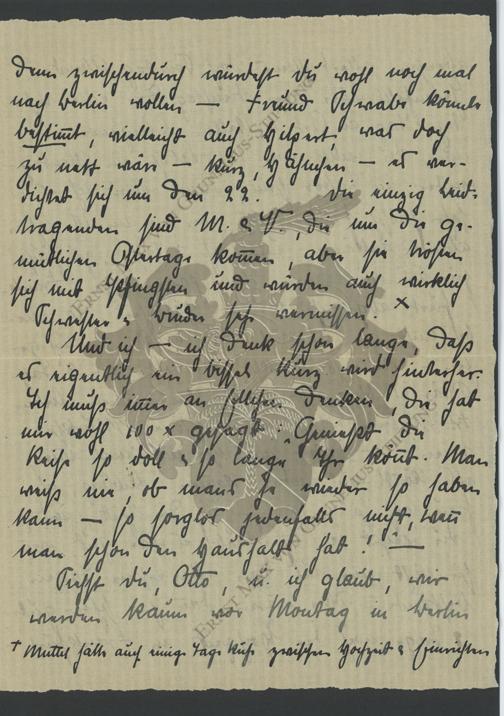 Denn zwischendurch würdest Du wohl noch mal
nach Berlin wollen — Freund Schwabe könnte
bestimmt, vielleicht auch Hilpert, was doch
zu nett wäre — kurz, Hähnchen — es ver-
dichtet sich um den 22. Die einzig Leid-
tragenden sind M. & V., die um die ge-
mütlichen Ostertage kommen, aber sie trösten
sich mit Pfingsten und würden auch wirklich
Schwester & Bruder sehr vermissen. x
Und ich — ich denk schon lange, daß
es eigentlich ein bissel kurz wird hinterher.
Ich muß immer an denken, die hat
mir wohl 100 x gesagt: "Genießt die
Reise so doll & so lange Ihr könnt. Man
weiß nie, ob mans je wieder so haben
kann — so sorglos jedenfalls nicht, wenn
man schon den Haushalt hat!" —
Siehst Du, Otto, u. ich glaub, wir
werden kaum vor Montag in Berlin
+ Muttel hätte auch einige Tage Ruhe zwischen Hochzeit & Einrichten
Ernst Max von Grunelius-Stiftung